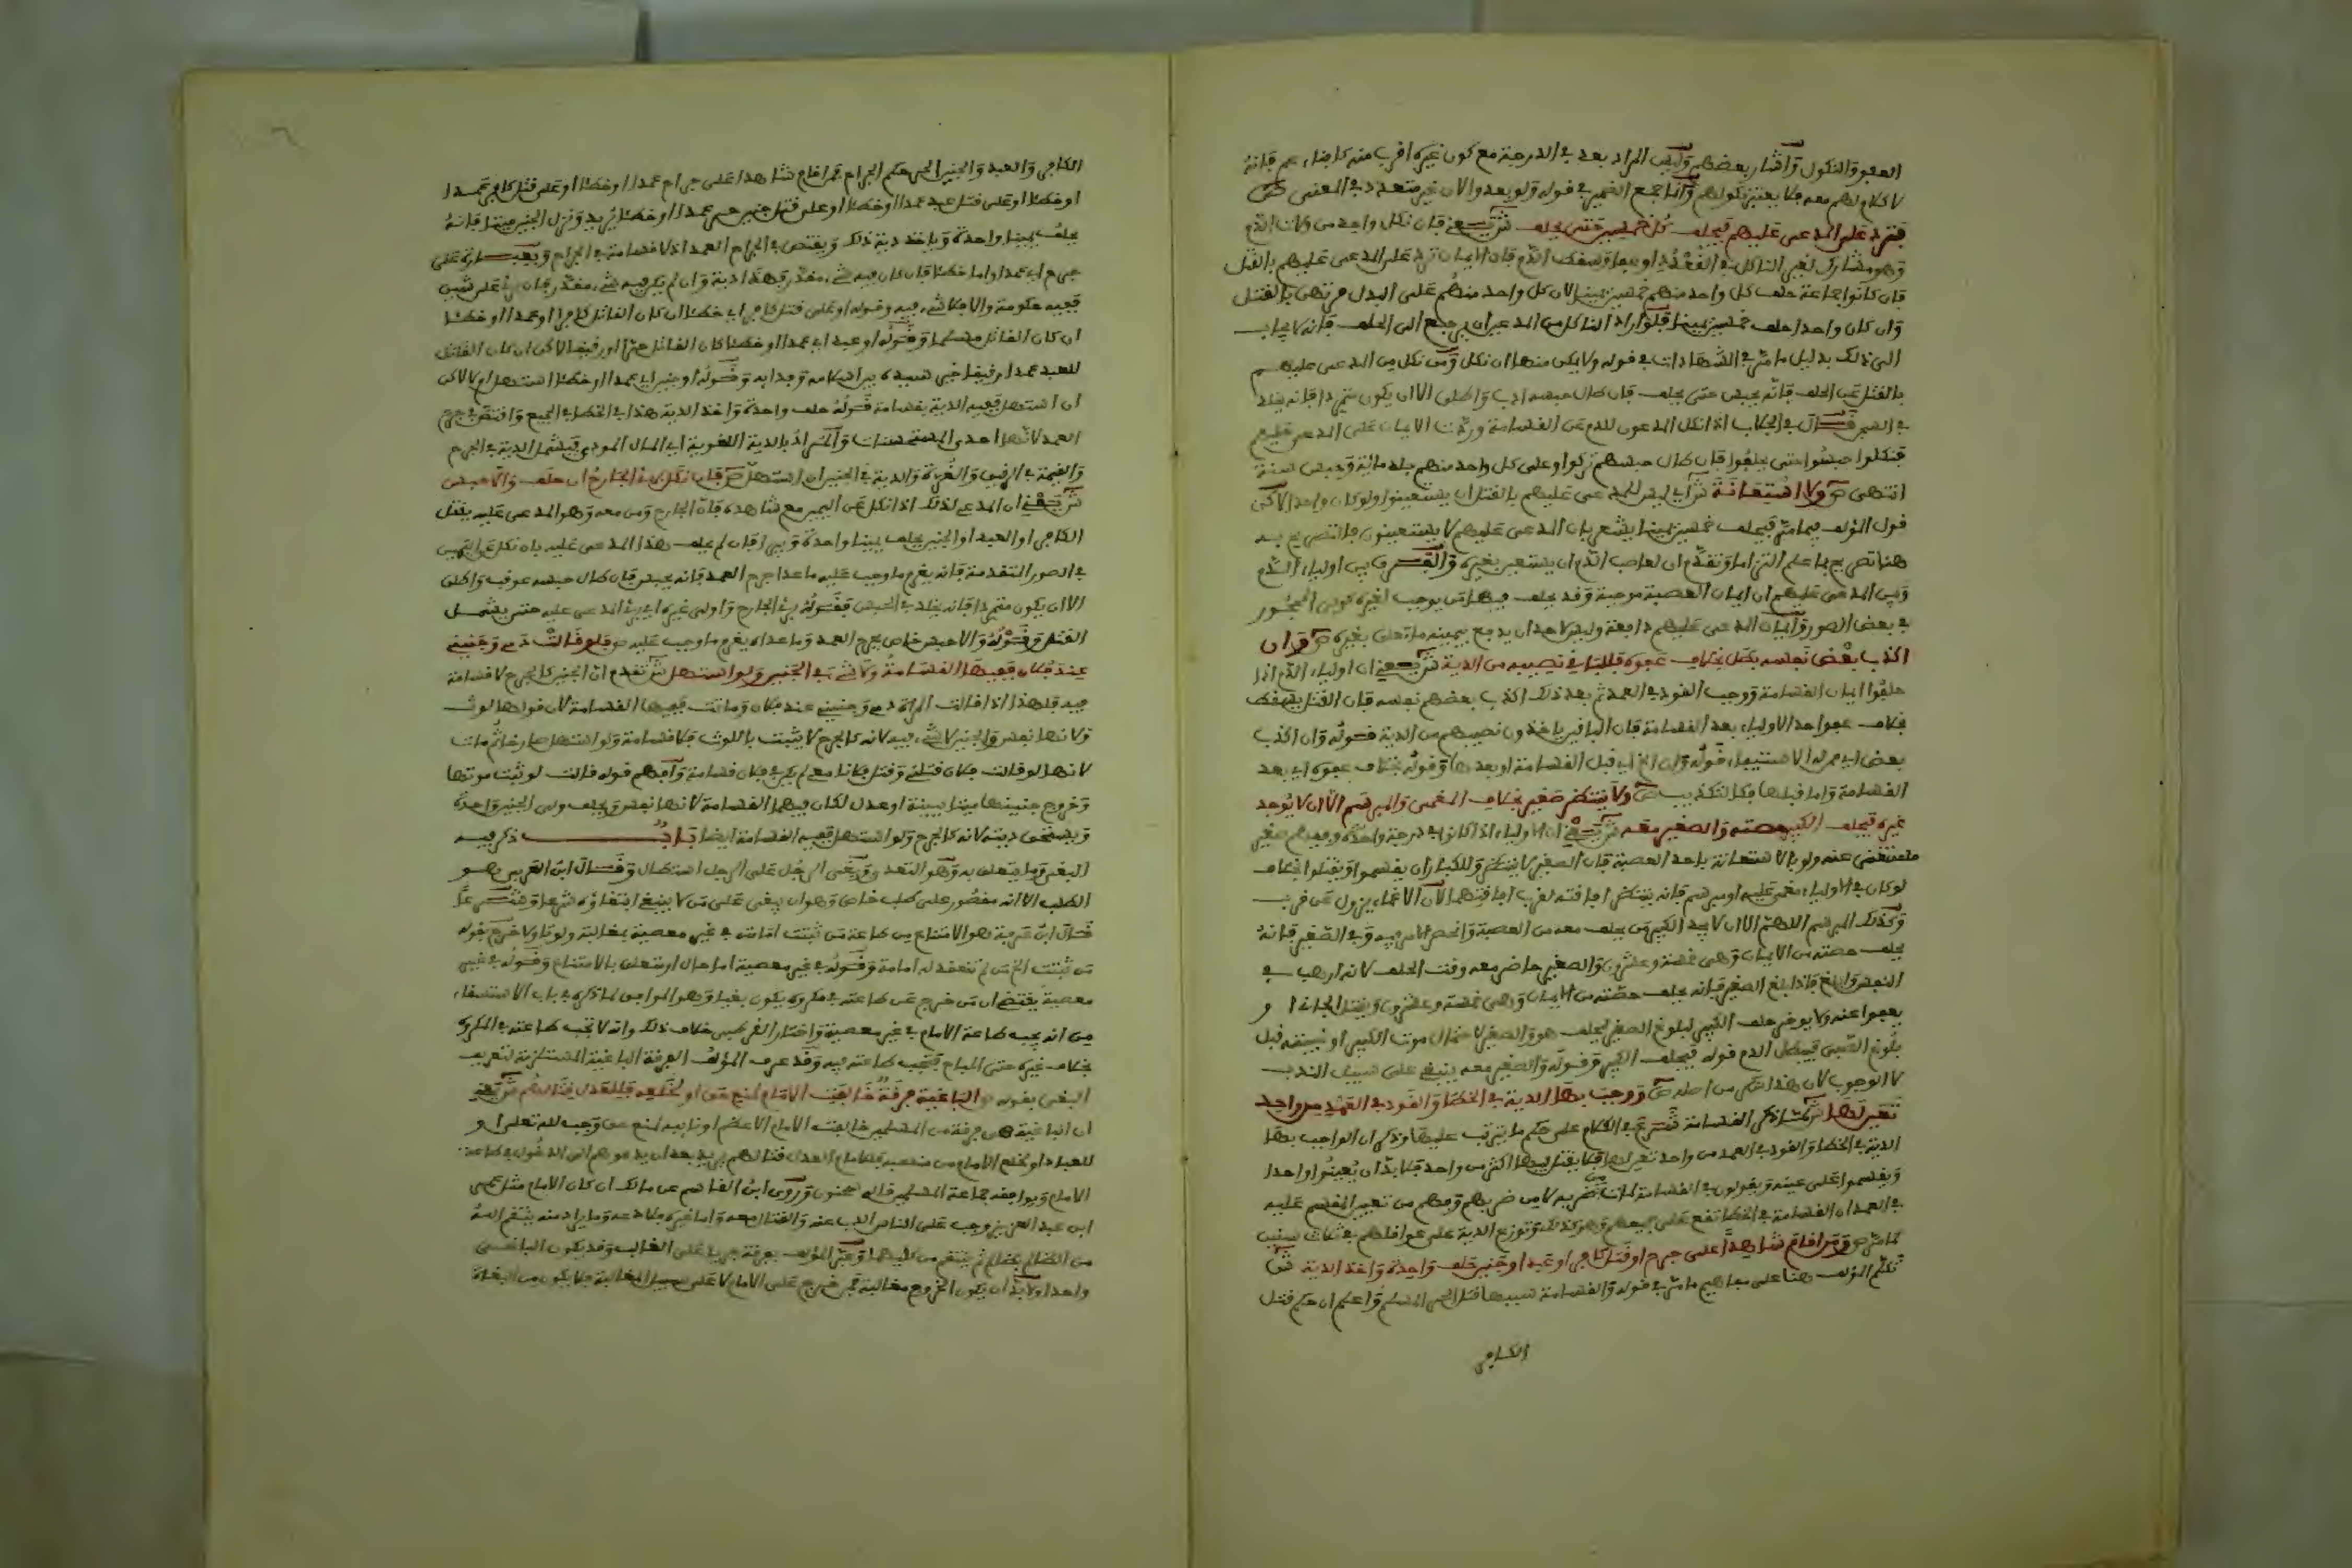 العفو والنكول وأشار بعضهم وليس المراد بعد في الدرجة مع كون غيره أقرب منه كابناء عم فإنه
لا كلام لهم معه فلا يعتبر نكولهم وإنما جمع الضمير في قوله ولو بعدوا لأن غير متعدد في المعنى ص
فترد على المدعى عليهم فيحلف كل خمسين ومن نكل حبس حتى يحلف ش يعني فإن نكل واحد من ولاة الدم
وهو مشارك لغير الناكل في القعدد أو عفا وسقط الدم فإن الأيمان ترد على المدعى عليهم بالقتل
فإن كانوا جماعة حلف كل واحد منهم خمسين يمينا لأن كل واحد منهم على البدل مرتهن بالقتل
وإن كان واحدا حلف خمسين يمينا فلو أراد الناكل من المدعين أن يرجع إلى الحلف فإنه لا يجاب
إلى ذلك بدليل ما مر في الشهادات في قوله ولا يمكن منها إن نكل ومن نكل من المدعى عليهم
بالقتل عن الحلف فإنه يحبس حتى يحلف فإن طال حبسه أدب وأطلق إلا أن يكون متمردا فإنه يخلد
في السجن قال في الجلاب إذا نكل المدعون للدم عن القسامة وردت الأيمان على المدعى عليهم
فنكلوا حبسوا حتى يحلفوا فإن طال حبسهم تركوا وعلى كل واحد منهم جلد مائة وحبس سنة
انتهى ص ولا استعانة ش أي ليس للمدعى عليهم بالقتل أن يستعينوا ولو كان واحدا لكن
قول المؤلف فيما مر فيحلف خمسين يمينا يشعر بأن المدعى عليهم لا يستعينون فالتصريح به
هنا تصريح بما علم التزاما وتقدم أن لصاحب الدم أن يستعين بغيره والفرق بين أولياء الدم
وبين المدعى عليهم أن أيمان العصبة موجبة وقد يحلف فيها من يوجب لغيره كولي المحجور
في بعض الصور وأيمان المدعى عليهم دافعة وليس لأحد أن يدفع بيمينه ما تعلق بغيره ص وإن
أكذب بعض نفسه بطل بخلاف عفوه فللباقي نصيبه من الدية ش يعني أن أولياء الدم إذا
حلفوا أيمان القسامة ووجب القود في العمد ثم بعد ذلك أكذب بعضهم نفسه فإن القتل يسقط
بخلاف عفو أحد الأولياء بعد القسامة فإن الباقين يأخذون نصيبهم من الدية قوله وإن أكذب
بعض أي ممن له الاستيفاء قوله وإن الخ أي قبل القسامة أو بعدها وقوله بخلاف عفوه أي بعد
القسامة وأما قبلها فكالتكذيب ص ولا ينتظر صغير بخلاف المغمى والمبرسم إلا أن لا يوجد
غيره فيحلف الكبير حصته والصغير معه ش يعني أن الأولياء إذا كانوا في درجة واحدة وفيهم صغير
مستغنى عنه ولو بالاستعانة بأحد العصبة فإن الصغير لا ينتظر وللكبار أن يقسموا ويقتلوا بخلاف
لو كان في الأولياء مغمى عليه أو مبرسم فإنه ينتظر إفاقته لقرب إفاقتهما لأن الإغماء يزول عن قرب
وكذلك المبرسم اللهم إلا أن لا يجد الكبير من يحلف معه من العصبة وانحصر الأمر فيه وفي الصغير فإنه
يحلف حصته من الأيمان وهي خمسة وعشرون والصغير حاضر معه وقت الحلف لأنه أرهب في
النفس وأبلغ فإذا بلغ الصغير فإنه يحلف حصته من الأيمان وهي خمسة وعشرون ويقتل الجاني أو
يعفوا عنه ولا يؤخر حلف الكبير لبلوغ الصغير ليحلف هو والصغير لاحتمال موت الكبير أو غيبته قبل
بلوغ الصبي فيبطل الدم قوله فيحلف الكبير وقوله والصغير معه ينبغي على سبيل الندب
لا الوجوب لأن هذا الحكم من أصله ص ووجب بها الدية في الخطأ والقود في العمد من واحد
تعين لها ش لما ذكر القسامة شرع في الكلام على حكم ما يترتب عليها وذكر أن الواجب بها
الدية في الخطأ والقود في العمد من واحد تعين لها فلا يقتل بها أكثر من واحد فلا بد أن يعينوا واحدا
ويقسموا على عينه ويقولون في القسامة لمات من ضربه لا من ضربهم وفهم من تعيين المقسم عليه
في العمد أن القسامة في الخطأ تقع على جميعهم وهو كذلك وتوزع الدية على عواقلهم في ثلاث سنين
كما مر ص ومن أقام شاهدا على جرح أو قتل كافر أو عبد أو جنين حلف واحدة وأخذ الدية ش
تكلم المؤلف هنا على مفاهيم ما مر في قوله والقسامة سببها قتل الحر المسلم واعلم أن حكم قتل
الكافر
الكافر والعبد والجنين الحر حكم الجراح فمن أقام شاهدا على جراح عمدا أو خطئا أو على قتل كافر عمدا
أو خطئا أو على قتل عبد عمدا أو خطئا أو على قتل جنين حر عمدا أو خطئا يريد ونزل الجنين ميتا فإنه
يحلف يمينا واحدة ويأخذ دية ذلك ويقتص في الجراح العمد إذ لا قسامة في الجراح وبعبارة على
جرح أي عمدا وأما خطئا فإن كان فيه شيء مقدر فهذا دية وإن لم يكن فيه شيء مقدر فإن برئ على شين
ففيه حكومة وإلا فلا شيء فيه وقوله أو على قتل كافر أي خطئا إن كان القاتل كافرا أو عمدا أو خطئا
إن كان القاتل مسلما وقوله أو عبد أي عمدا أو خطئا كان القاتل حرا أو رقيقا لكن إن كان القاتل
للعبد عمدا رقيقا خير سيده بين إسلامه وفدائه وقوله أو جنين أي عمدا أو خطئا استهل أو لا لكن
إن استهل ففيه الدية بقسامة قوله حلف واحدة وأخذ الدية هذا في الخطأ في الجميع واقتص في جرح
العمد لأنها إحدى المستحسنات والمراد بالدية اللغوية أي المال المودى فيشمل الدية في الجرح
والقيمة في الرقيق والغرة والدية في الجنين إن استهل ص فإن نكل برئ الجارح إن حلف وإلا حبس
ش يعني أن المدعي لذلك إذا نكل عن اليمين مع شاهده فإن الجارح ومن معه وهو المدعى عليه بقتل
الكافر أو العبد أو الجنين يحلف يمينا واحدة ويبرأ فإن لم يحلف هذا المدعى عليه بأن نكل عن اليمين
في الصور المتقدمة فإنه يغرم ما وجب عليه ما عدا جرح العمد فإنه يحبس فإن طال حبسه عوقب وأطلق
إلا أن يكون متمردا فإنه يخلد في الحبس فقوله برئ الجارح وأولى غيره أي برئ المدعى عليه حتى يشمل
القتل وقوله وإلا حبس خاص بجرح العمد وما عداه يغرم ما وجب عليه ص فلو قالت دمي وجنيني
عند فلان ففيها القسامة ولا شيء في الجنين ولو استهل ش تقدم أن الجنين كالجرح لا قسامة
فيه فلهذا إذا قالت المرأة دمي وجنيني عند فلان وماتت ففيها القسامة لأن قولها لوث
ولأنها نفس والجنين لا شيء فيه لأنه كالجرح لا يثبت باللوث فلا قسامة ولو استهل صارخا ثم مات
لأنها لو قالت فلان قتلني وقتل فلانا معي لم يكن في فلان قسامة وأفهم قوله قالت لو ثبت موتها
وخروج جنينها ميتا ببينة أو عدل لكان فيها القسامة لأنها نفس ويحلف ولي الجنين واحدة
ويستحق ديته لأنه كالجرح ولو استهل ففيه القسامة أيضا باب ذكر فيه
البغي وما يتعلق به وهو التعدي وبغى الرجل على الرجل استطال وقال ابن العربي هو
الطلب إلا أنه مقصور على طلب خاص وهو أن يبغي على من لا ينبغي ابتغاؤه شرعا وشرعا
قال ابن عرفة هو الامتناع من طاعة من ثبتت إمامته في غير معصية بمغالبة ولو تأولا خرج بقوله
من ثبتت الخ من لم تنعقد له إمامة وقوله في غير معصية إما حال أو متعلق بالامتناع وقوله في غير
معصية يقتضي أن من خرج عن طاعته في مكروه يكون بغيا وهو الموافق لما ذكره في باب الاستسقاء
من أنه يجب طاعة الإمام في غير معصية واختار القرطبي خلاف ذلك وأنه لا تجب طاعته في المكروه
بخلاف غيره حتى المباح فتجب طاعته فيه وقد عرف المؤلف الفرقة الباغية المستلزمة لتعريف
البغي بقوله ص الباغية فرقة خالفت الإمام لمنع حق أو لخلعه فللعدل قتالهم ش يعني
أن الباغية هي فرقة من المسلمين خالفت الإمام الأعظم أو نائبه لمنع حق وجب لله تعالى أو
للعباد أو لخلع الإمام من منصبه فللإمام العدل قتالهم يريد بعد أن يدعوهم إلى الدخول في طاعة
الإمام ويوافقه جماعة المسلمين قاله سحنون وروى ابن القاسم عن مالك إن كان الإمام مثل عمر
ابن عبد العزيز وجب على الناس الذب عنه والقتال معه وأما غيره فلا دعه وما يراد منه ينتقم الله
من الظالم بظالم ثم ينتقم من كليهما وعبر المؤلف بفرقة جريا على الغالب وقد يكون الباغي
واحدا ولا بد أن يكون الخروج مغالبة فمن خرج على الإمام لا على سبيل المغالبة فلا يكون من البغاة